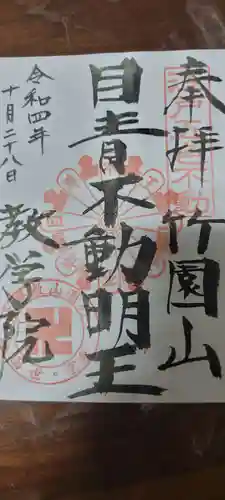 奉拝 竹園山
目青不動明王
教学院
令和四年
十月二十八日